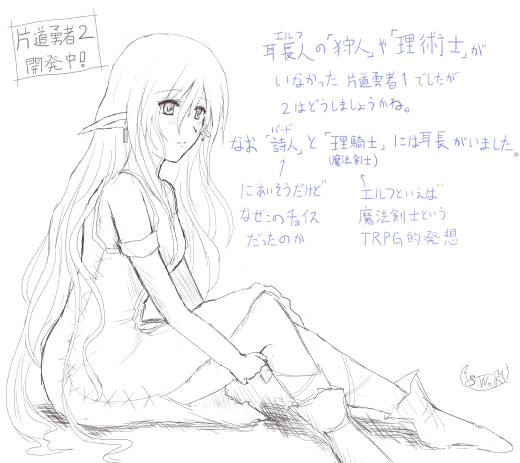 片道勇者2
開発中!
エルフ
耳長人の「狩人」や「理術士」が
いなかった 片道勇者1 でしたが
2はどうしましょうかね。
バード
なお「詩人」と「理騎士」には耳長がいました。
(魔法剣士)
にあいそうだけど
なぜこのチョイス
だったのか
エルフといえば
魔法剣士という
TRPG的発想